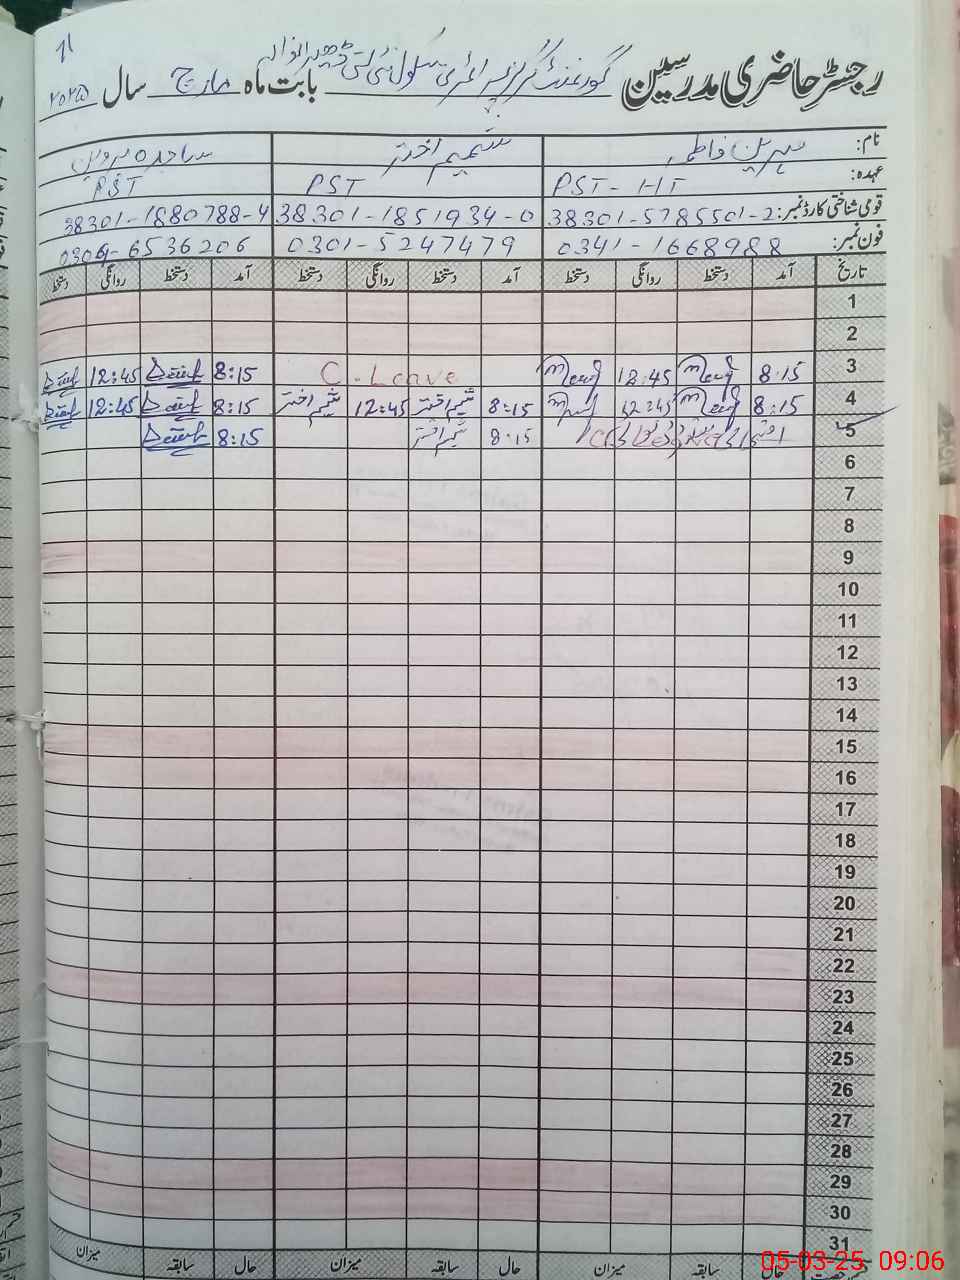 11
رجسٹر حاضری مدرسین گورنمنٹ گرلز پرائمری سکول بابت ماہ مارچ سال ۲۰۲۵
نام: مہرین فاطمہ شمیم اختر ساجدہ پروین
عہدہ: PST-HT PST PST
قومی شناختی کارڈ نمبر: 38301-5785501-2 38301-1851934-0 38301-1880788-4
فون نمبر: 0341-1668988 0301-5247479 0306-6536206
تاریخ آمد دستخط روانگی دستخط آمد دستخط روانگی دستخط آمد دستخط روانگی دستخط
1
2
3 8:15 12:45 C.Leave 8:15 12:45
4 8:15 12:45 8:15 شمیم اختر 12:45 شمیم اختر 8:15 12:45
5 8:15 شمیم اختر 8:15
6
7
8
9
10
11
12
13
14
15
16
17
18
19
20
21
22
23
24
25
26
27
28
29
30
31
حال سابقہ میزان حال سابقہ میزان حال سابقہ میزان
05-03-25 09:06